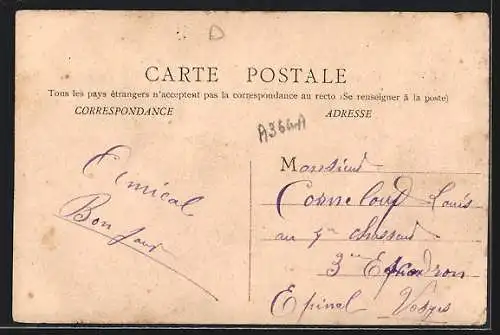 D
CARTE POSTALE
Tous les pays étrangers n'acceptent pas la correspondance au recto (Se renseigner à la poste)
CORRESPONDANCE
ADRESSE
A364A
Amical
Bonjour
Monsieur
Corneloup Louis
au 4e chasseur
3me Escadron
Epinal Vosges